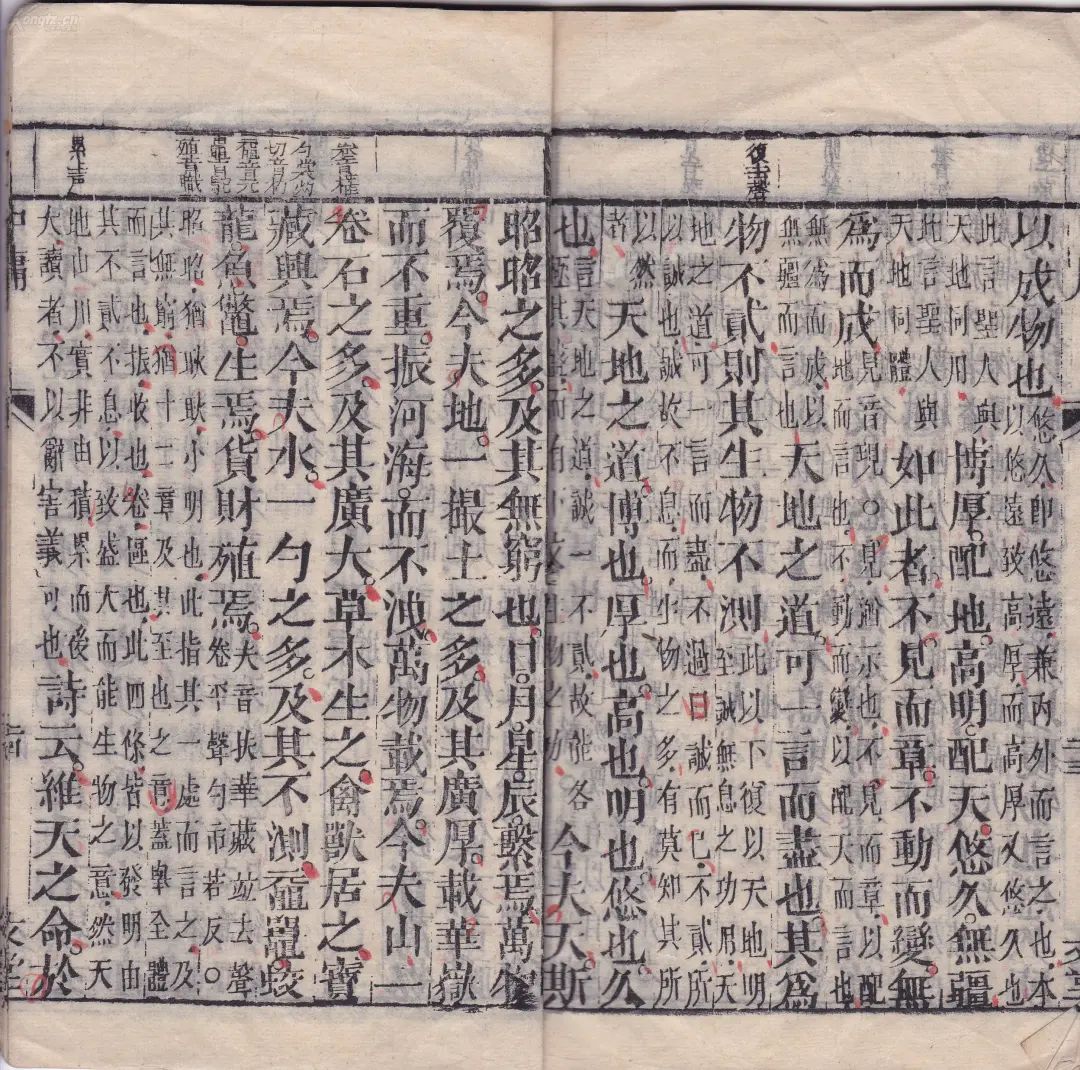 復去聲
以成物也。悠久即悠遠兼內外而言之也本
以悠遠致高厚而高厚又悠久也
此言聖人與
天地同用
博厚。配地。高明。配天。悠久。無疆
此言聖人與
天地同體
如此者。不見而章。不動而變。無
為而成
見音現。〇見猶示也。不見而章以配
地而言也不動而變以配天而言也
無為而成以
無疆而言也
天地之道。可一言而盡也。其為
物不貳則其生物不測
此以下復以天地明
至誠無息之功用天
地之道可一言而盡不過曰誠而已不貳所
以誠也誠故不息而生物之多有莫知其所
以然
者
天地之道。博也。厚也。高也。明也。悠也。久
也。
言天地之道誠一不貳故能各
極其盛而有下文生物之功
今夫天斯
卷音權
勺裳灼
切音杓
黿音元
鼉音駝
殖音職
累上聲
昭昭之多。及其無窮也。日月星辰。繫焉。萬物
覆焉。今夫地。一撮土之多。及其廣厚。載華嶽
而不重。振河海。而不洩。萬物載焉。今夫山一
卷石之多。及其廣大。草木生之。禽獸居之。寶
藏興焉。今夫水。一勺之多。及其不測。黿鼉。蛟
龍。魚鱉。生焉。貨財殖焉。
夫音扶華藏並去聲
卷平聲勺市若反。〇
昭昭猶耿耿小明也此指其一處而言之及
其無窮猶十二章及其至也之意蓋舉全體
而言也振收也卷區也此四條皆以發明由
其不貳不息以致盛大而能生物之意然天
地山川實非由積累而後
大讀者不以辭害義可也
詩云。維天之命。於
中庸